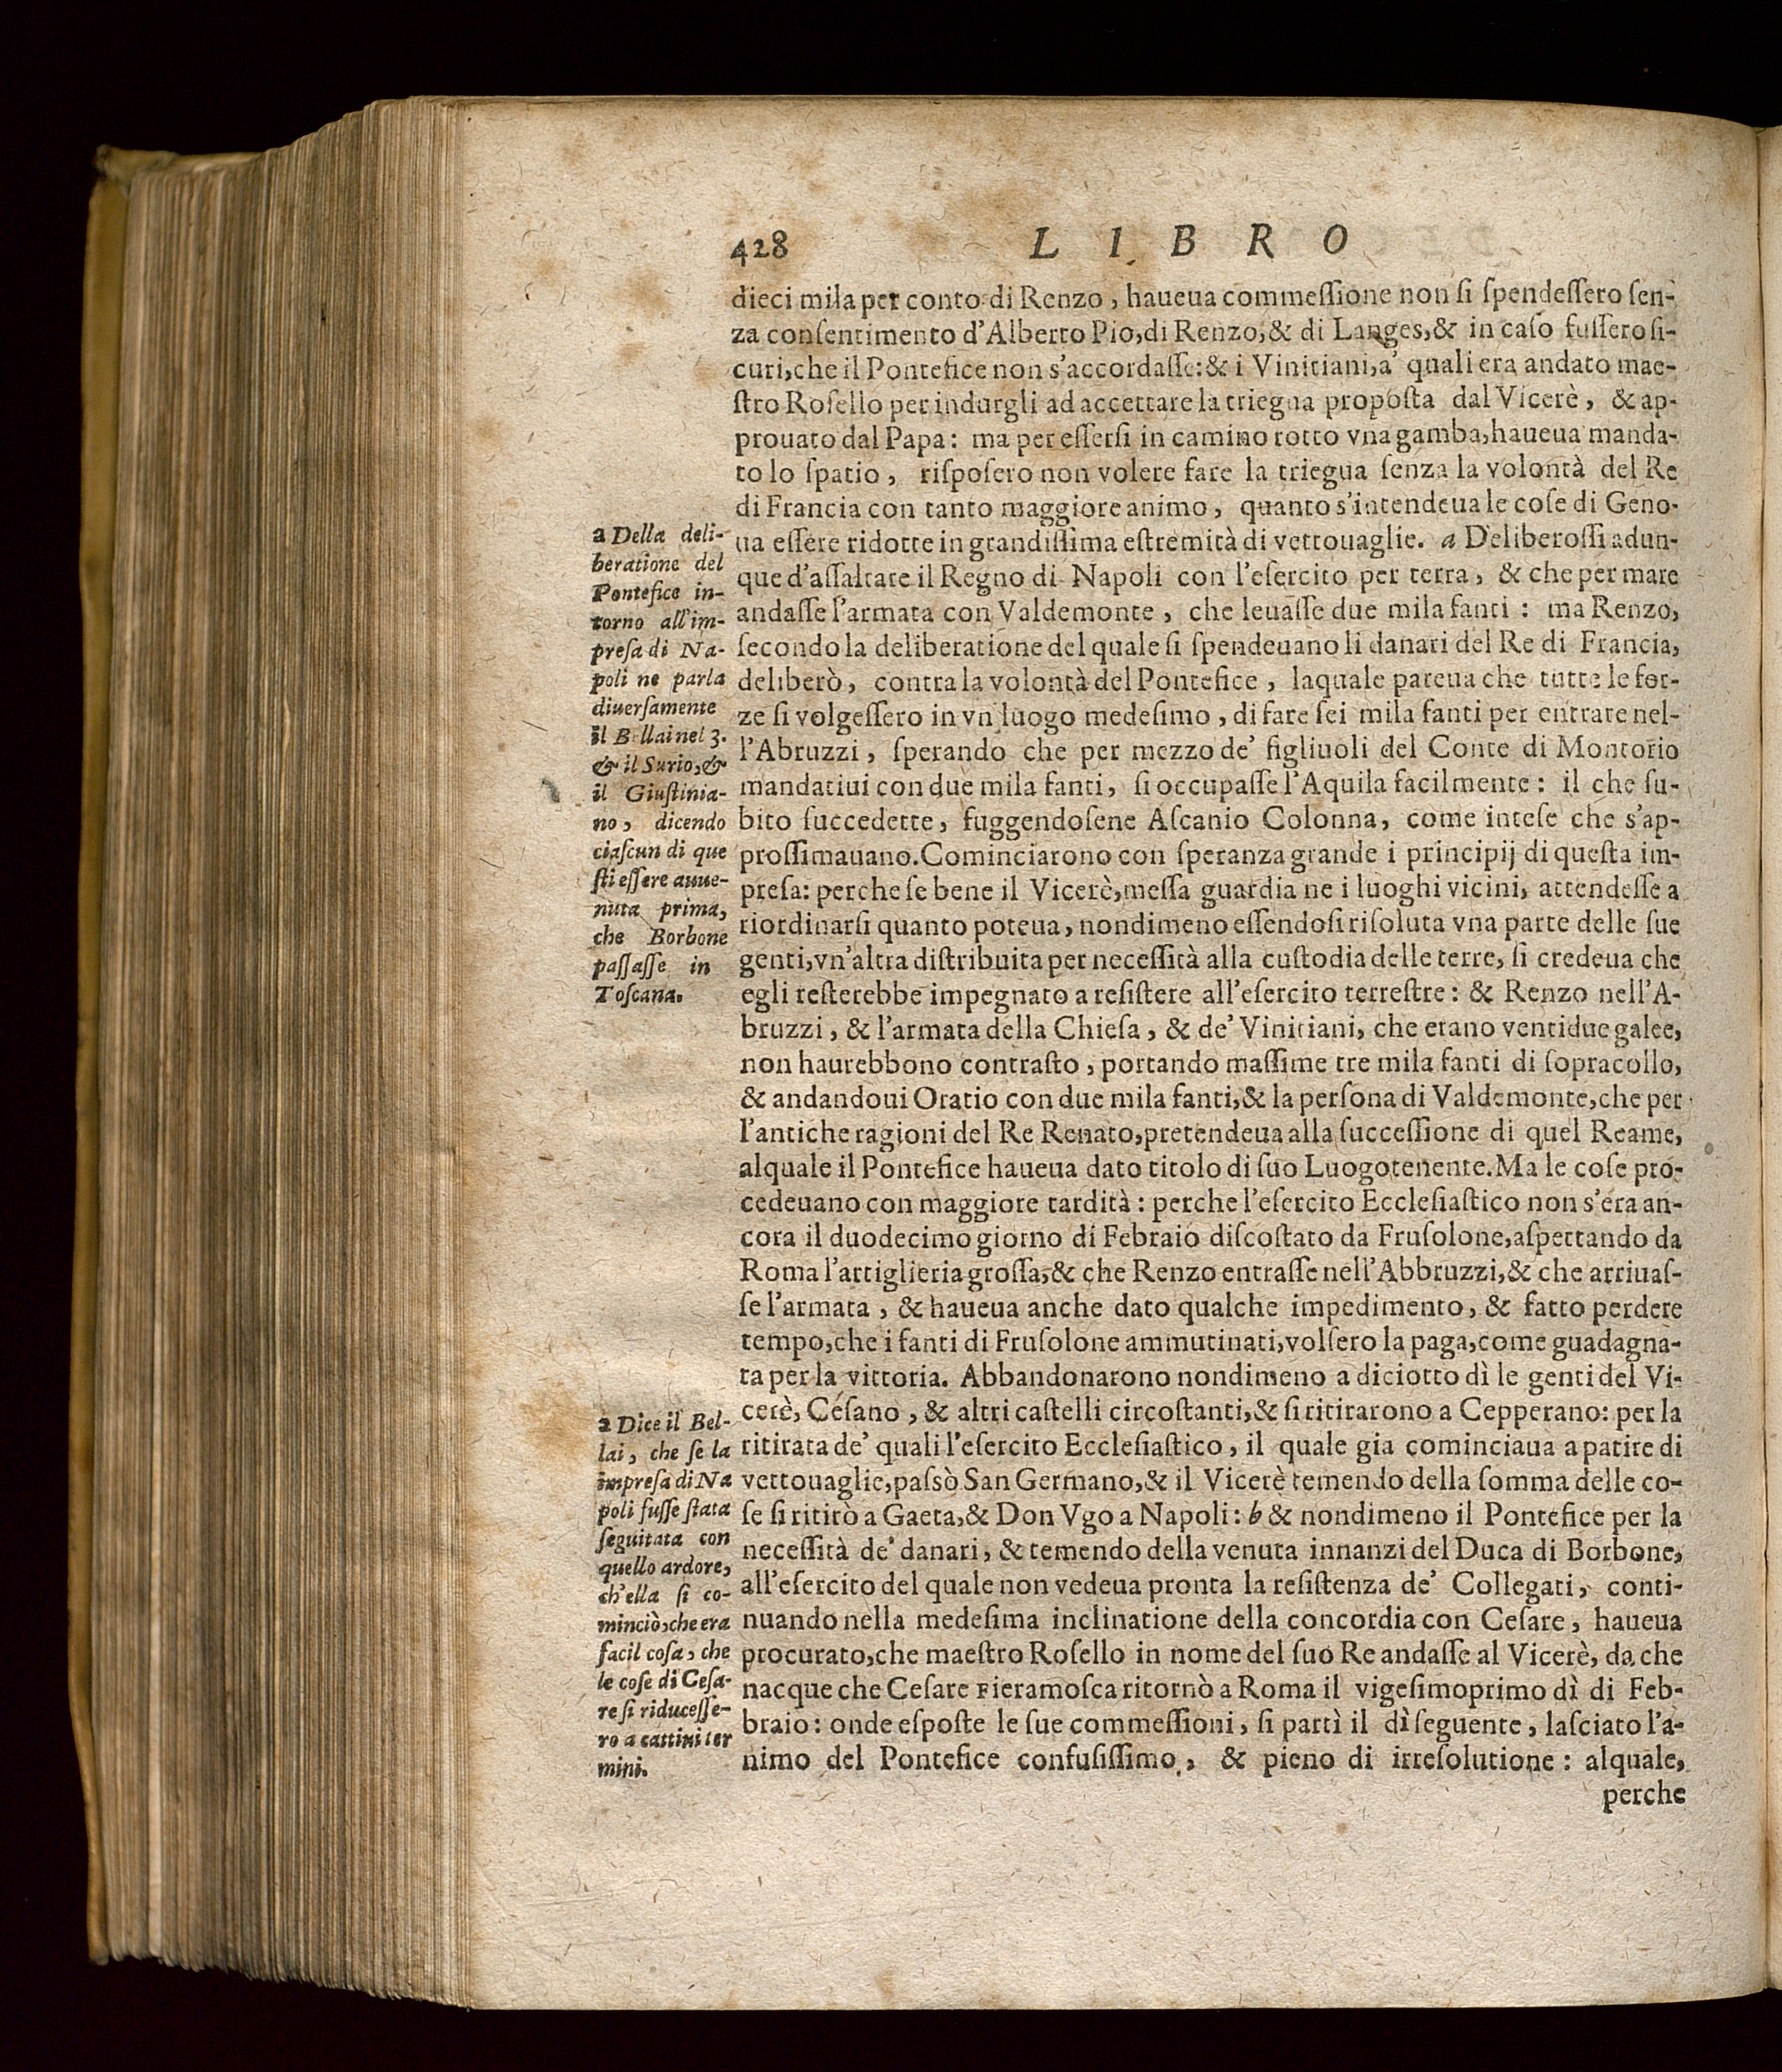 428 LIBRO
dieci mila per conto di Renzo, haueua commeſſione non ſi ſpendeſſero ſen-
za conſentimento d'Alberto Pio, di Renzo, & di Langes, & in caſo fuſſero ſi-
curi, che il Pontefice non s'accordaſſe: & i Vinitiani, a' quali era andato mae-
ſtro Roſello per indurgli ad accettare la triegua propoſta dal Vicerè, & ap-
prouato dal Papa: ma per eſſerſi in camino rotto vna gamba, haueua manda-
to lo ſpatio, riſpoſero non volere fare la triegua ſenza la volontà del Re
di Francia con tanto maggiore animo, quanto s'intendeua le coſe di Geno-
ua eſſere ridotte in grandiſſima eſtremità di vettouaglie. a Deliberoſſi adun-
que d'aſſaltare il Regno di Napoli con l'eſercito per terra, & che per mare
andaſſe l'armata con Valdemonte, che leuaſſe due mila fanti: ma Renzo,
ſecondo la deliberatione del quale ſi ſpendeuano li danari del Re di Francia,
deliberò, contra la volontà del Pontefice, laquale pareua che tutte le for-
ze ſi volgeſſero in vn luogo medeſimo, di fare ſei mila fanti per entrare nel-
l'Abruzzi, ſperando che per mezzo de' figliuoli del Conte di Montorio
mandatiui con due mila fanti, ſi occupaſſe l'Aquila facilmente: il che ſu-
bito ſuccedette, fuggendoſene Aſcanio Colonna, come inteſe che s'ap-
proſſimauano. Cominciarono con ſperanza grande i principij di queſta im-
preſa: perche ſe bene il Vicerè, meſſa guardia ne i luoghi vicini, attendeſſe a
riordinarſi quanto poteua, nondimeno eſſendoſi riſoluta vna parte delle ſue
genti, vn'altra diſtribuita per neceſſità alla cuſtodia delle terre, ſi credeua che
egli reſterebbe impegnato a reſiſtere all'eſercito terreſtre: & Renzo nell'A-
bruzzi, & l'armata della Chieſa, & de' Vinitiani, che erano ventidue galee,
non haurebbono contraſto, portando maſſime tre mila fanti di ſopracollo,
& andandoui Oratio con due mila fanti, & la perſona di Valdemonte, che per
l'antiche ragioni del Re Renato, pretendeua alla ſucceſſione di quel Reame,
alquale il Pontefice haueua dato titolo di ſuo Luogotenente. Ma le coſe pro-
cedeuano con maggiore tardità: perche l'eſercito Eccleſiaſtico non s'era an-
cora il duodecimo giorno di Febraio diſcoſtato da Fruſolone, aſpettando da
Roma l'artiglieria groſſa, & che Renzo entraſſe nell'Abbruzzi, & che arriuaſ-
ſe l'armata, & haueua anche dato qualche impedimento, & fatto perdere
tempo, che i fanti di Fruſolone ammutinati, volſero la paga, come guadagna-
ta per la vittoria. Abbandonarono nondimeno a diciotto dì le genti del Vi-
cerè, Ceſano, & altri caſtelli circoſtanti, & ſi ritirarono a Cepperano: per la
ritirata de' quali l'eſercito Eccleſiaſtico, il quale gia cominciaua a patire di
vettouaglie, paſsò San Germano, & il Vicerè temendo della ſomma delle co-
ſe ſi ritirò a Gaeta, & Don Vgo a Napoli: b & nondimeno il Pontefice per la
neceſſità de' danari, & temendo della venuta innanzi del Duca di Borbone,
all'eſercito del quale non vedeua pronta la reſiſtenza de' Collegati, conti-
nuando nella medeſima inclinatione della concordia con Ceſare, haueua
procurato, che maeſtro Roſello in nome del ſuo Re andaſſe al Vicerè, da che
nacque che Ceſare Fieramoſca ritornò a Roma il vigeſimoprimo dì di Feb-
braio: onde eſpoſte le ſue commeſſioni, ſi partì il dì ſeguente, laſciato l'a-
nimo del Pontefice confuſiſſimo, & pieno di irreſolutione: alquale,
perche
a Della deli-
beratione del
Pontefice in-
torno all'im-
preſa di Na-
poli ne parla
diuerſamente
il Bellai nel 3.
& il Surio, &
il Giuſtinia-
no, dicendo
ciaſcun di que
ſti eſſere auue-
nuta prima,
che Borbone
paſſaſſe in
Toſcana.
a Dice il Bel-
lai, che ſe la
impreſa di Na
poli fuſſe ſtata
ſeguitata con
quello ardore,
ch'ella ſi co-
minciò, che era
facil coſa, che
le coſe di Ceſa-
re ſi riduceſſe-
ro a cattiui ter
mini.